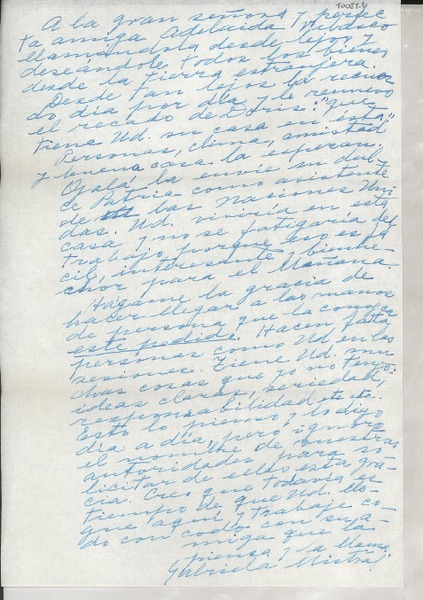 10081.4
A la gran señora y perfec
ta amiga Adelaida Velasco
llamandola desde lejos y
deseándole todos los bienes
desde la tierra extranjera.
Desde tan lejos la recuer
do dia por dia y le renuevo
el recado de Doris: "Que
tiene Ud. su casa en ésta"
Personas, clima, amistad
y buena casa la esperan.
Ojala la envie su dul
ce Patria como asistente
de las Naciones Uni
das. Ud. viviria en esta
casa y no se fatigaria del
trabajo, porque eso es fa
cil, interesante y bienhe
chor para el Mañana.
Hagame la grasia de
hacer llegar a las manos
de persona que la conozca
este pedido. Hacen falta
personas como Ud en las
sesiones. Tiene Ud. mu
chas cosas que yo no tengo:
ideas claras, seriedad,
responsabilidad, etc.
Esto lo pienso y lo digo
dia a dia, pero ignoro
el nombre de nuestras
autoridades para so-
licitar de ellos esta gra-
cia. Creo que todavia es
tiempo de que Ud. lle-
gue aqui y trabaje co-
do con codo con su a-
miga que la
piensa y la llama
Gabriela Mistral